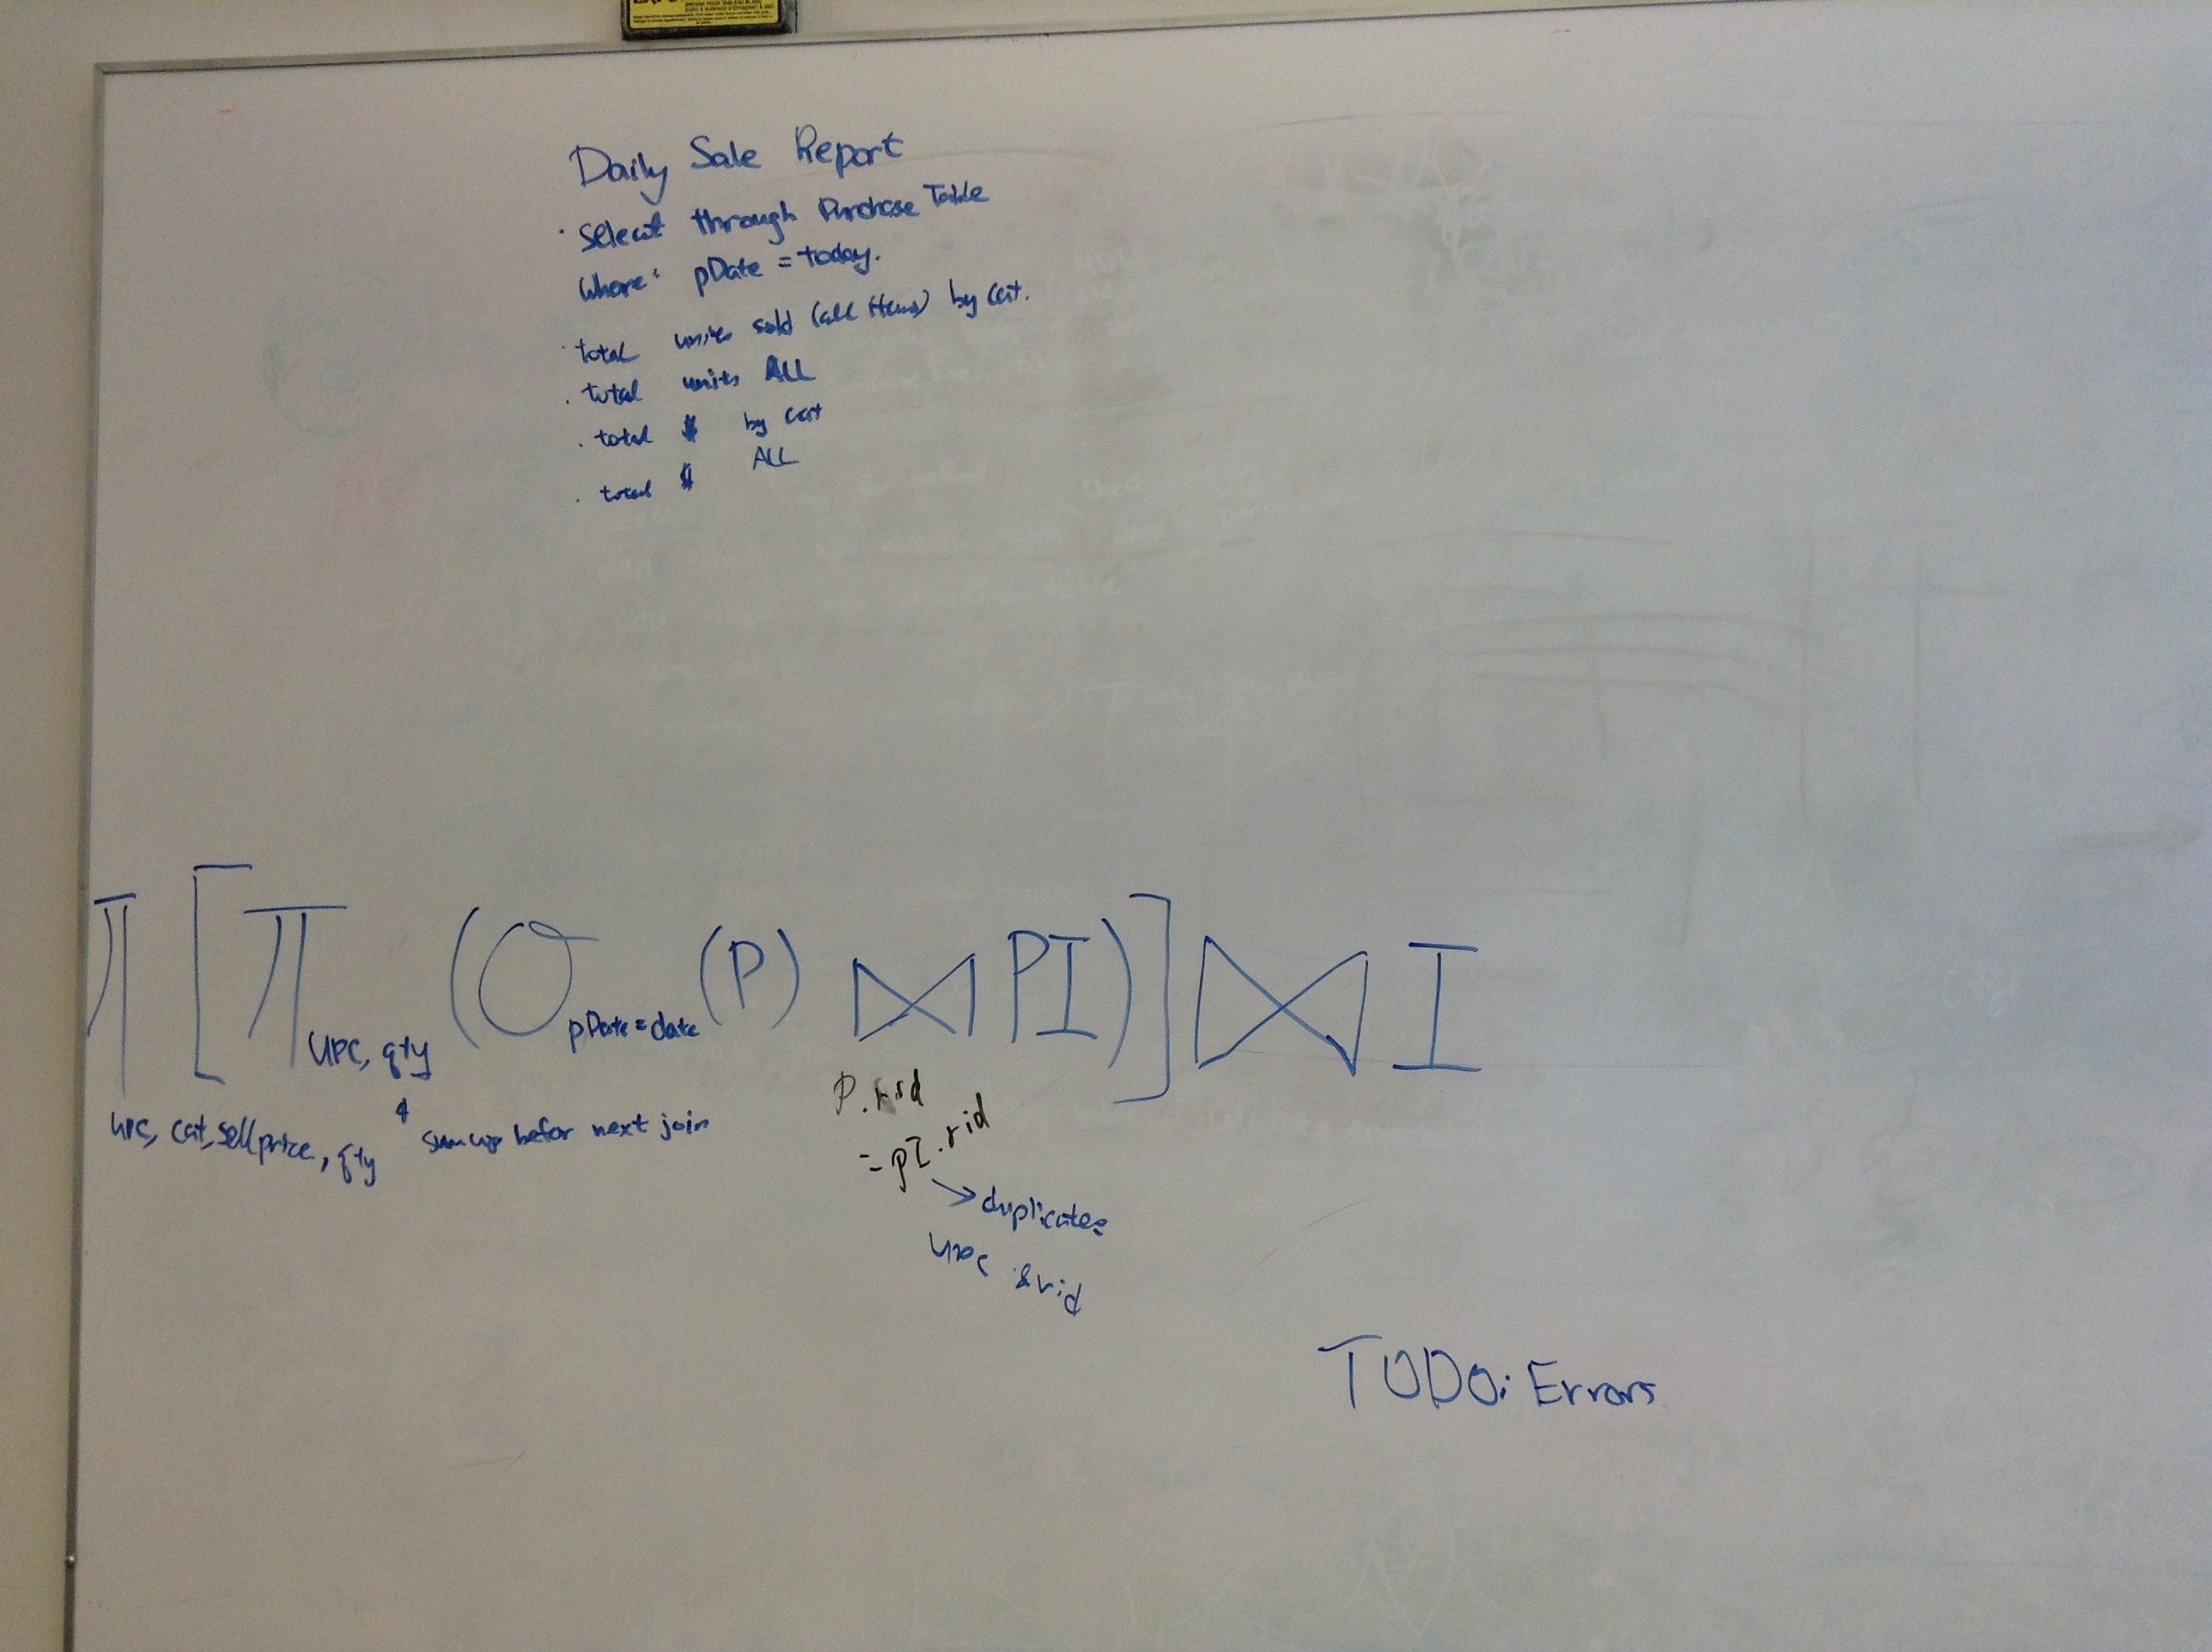 Daily Sale Report
· Select through Purchase Table
Where: pDate = today.
· total units sold (all items) by cat.
· total units ALL
· total $ by cat
· total $ ALL
π [ π UPC, qty ( σ pDate = date (P) ⋈ PI ) ] ⋈ I
upc, cat, sellprice, qty
sum up befor next join
P.rid
= pI.rid
→ duplicates
upc & rid
TODO: Errors